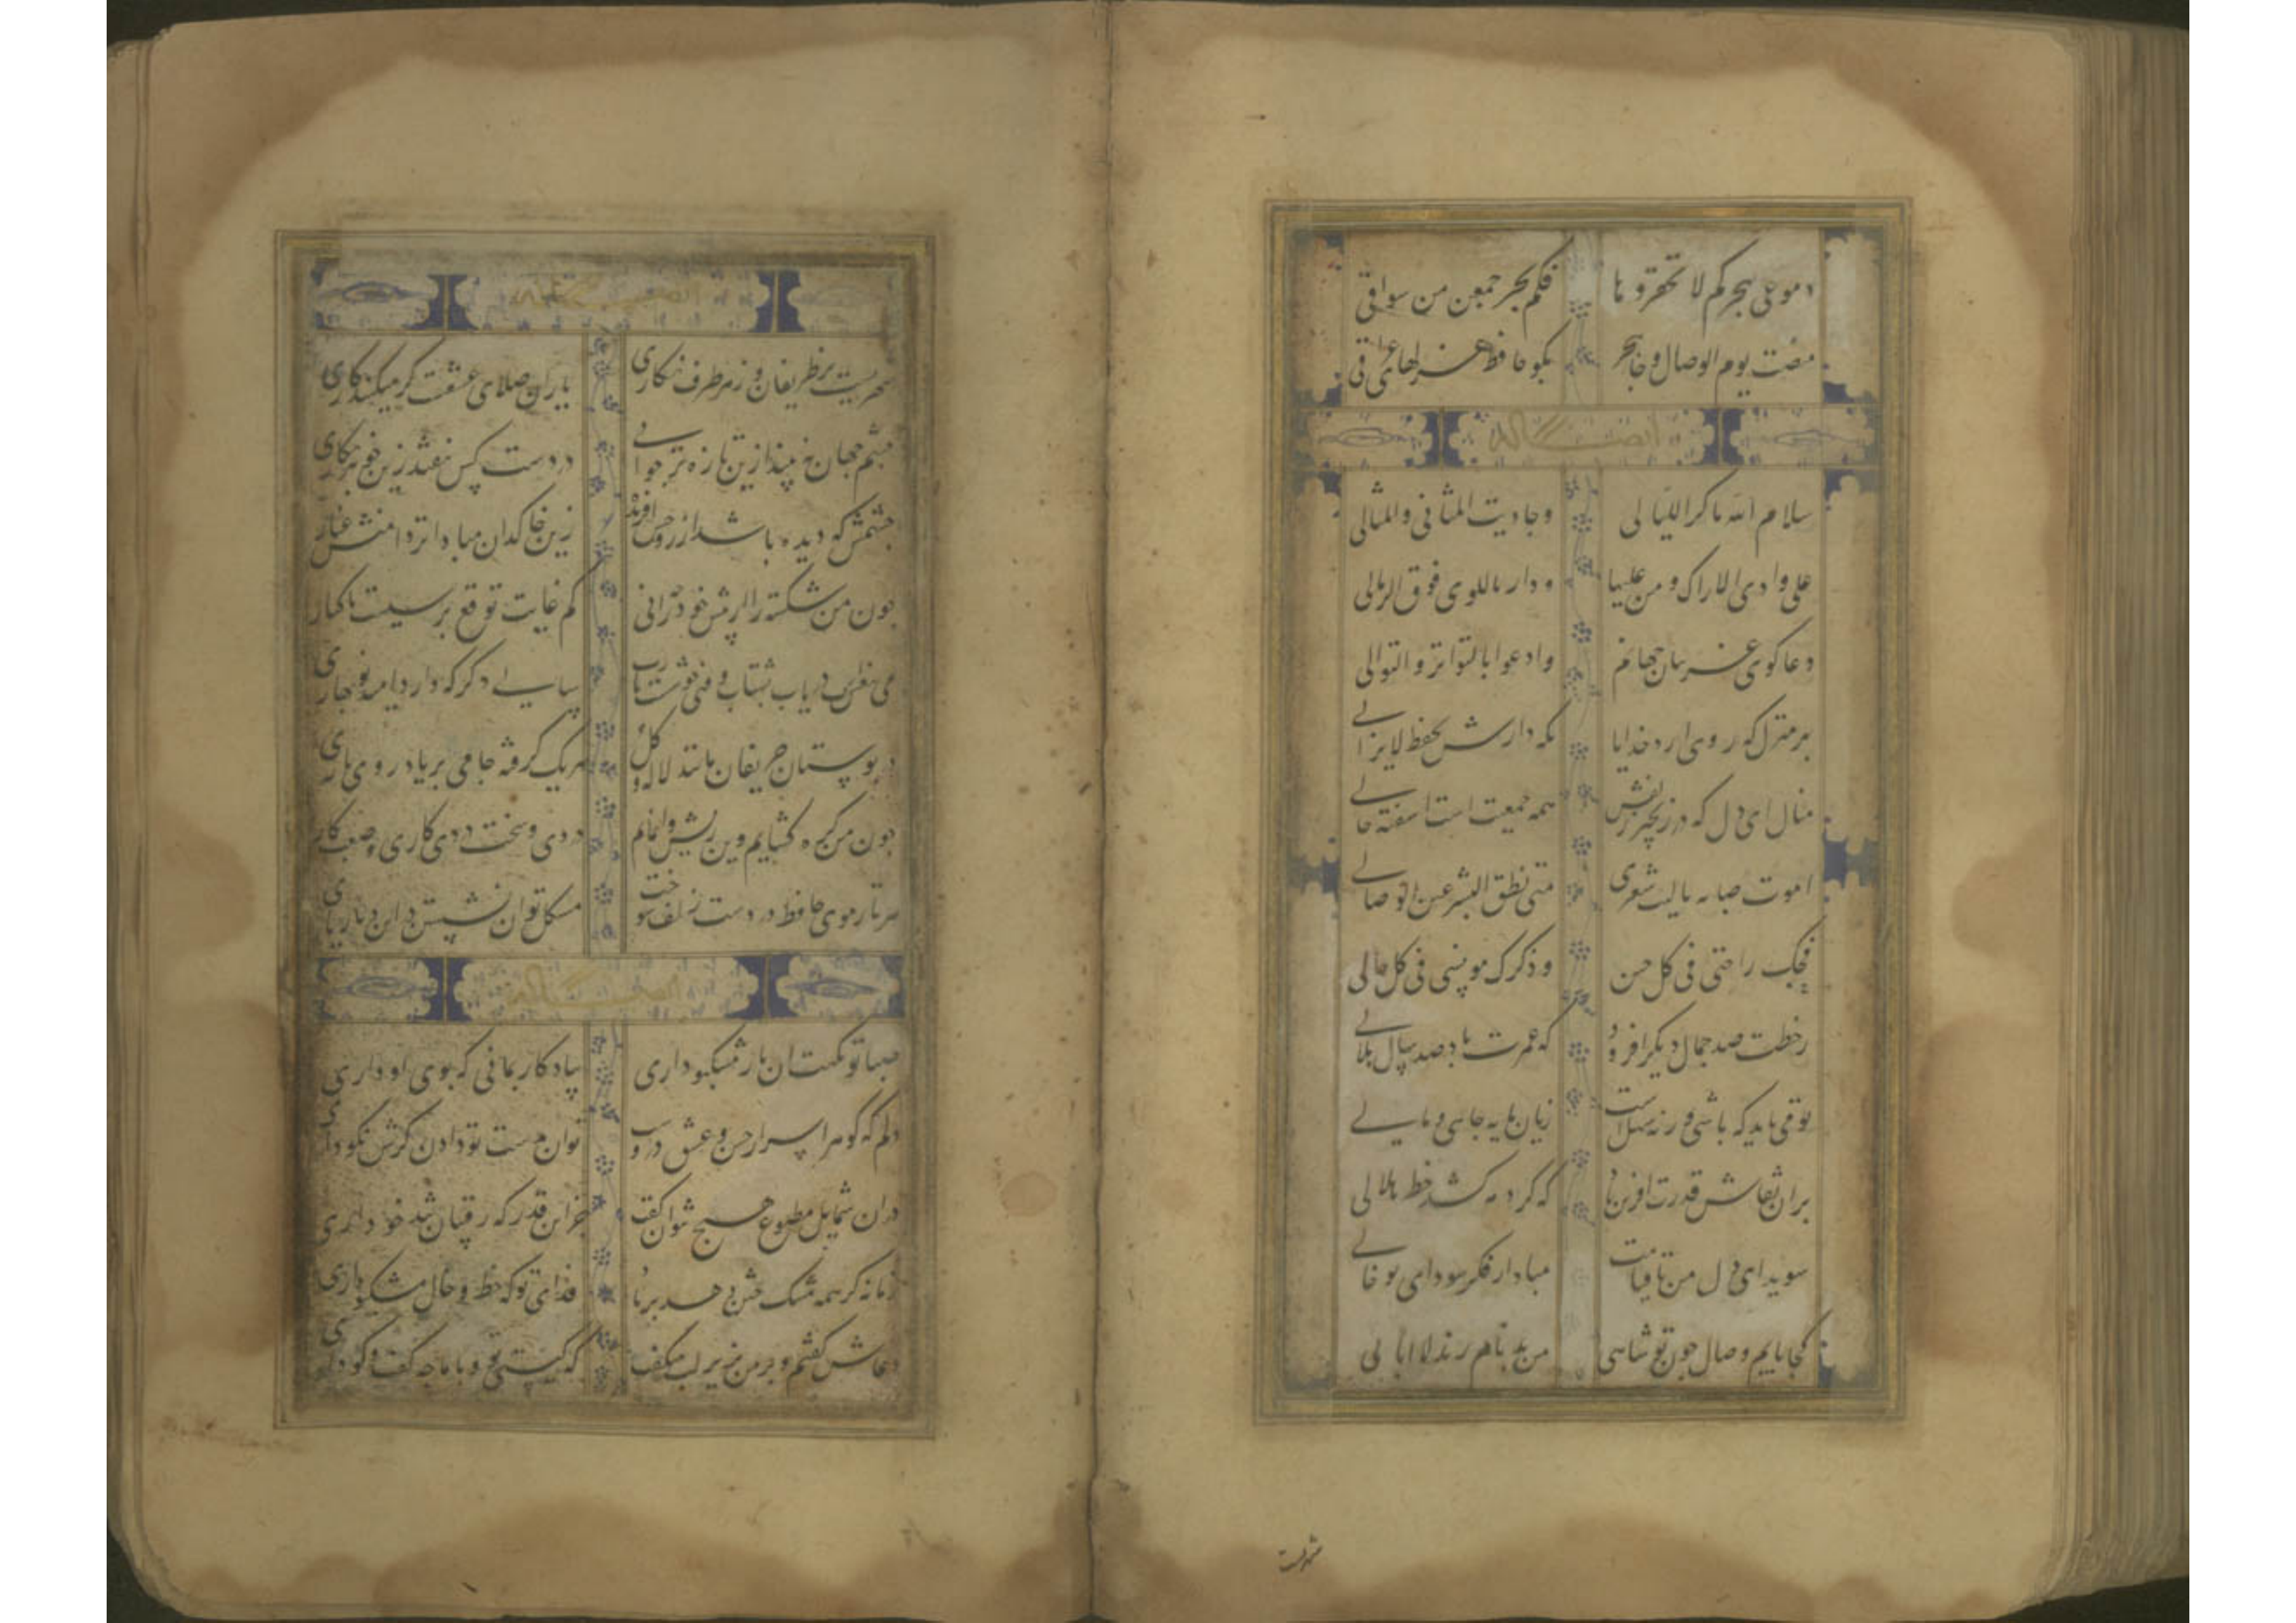 دموعی بحرکم لا تحقروها فکم بحر جمعن من سواقی
مضت یوم الوصال و خاتجر بکو حافظ غزلهای عراقی
ایضا له
سلام الله ماکر اللیالی وجاوبت المثانی والمثالی
علی وادی الاراک ومن علیها ودار باللوی فوق الرمالی
دعا کوی غریبان جهانم وادعوا بالتواتر والتوالی
بهر منزل که روی ارد خدایا نکه دارش بحفظ لایزالی
منال ای دل که در زنجیر زلفش همه جمعیت است اشفته حالی
اموت صبابه یالیت شعری متی نطق البشیر عن الوصالی
فحبک راحتی فی کل حین وذکرک مونسی فی کل حالی
زخطت صد جمال دیکر افزود که عمرت باد صد سال جلالی
تو می باید که باشی ورنه سهلست زیان مایه جاهی و مالی
بران نقاش قدرت افرین باد که کرد مه کشد خط هلالی
سویدای دل من تا قیامت مباد از فکر سودای تو خالی
کجا یابم وصال چون تو شاهی من بد نام رند لاابالی
شهریست
ایضا له
شهریست پر ظریفان وز هر طرف نکاری یاران صلای عشقست کر میکنید کاری
چشم جهان نبیند زین تازه تر جوانی در دست کس نیفتد زین خوبتر نکاری
چشمش که دیده باشد از روح افریده زین خاکدان مبادا بر دامنش غباری
چون من شکسته را از پیش خود چه رانی کم غایت توقع بوسیست یا کناری
می بیغش است دریاب بشتاب وقتی خوشست سالی دکر که دارد امید نوبهاری
در بوستان حریفان مانند لاله و کل هر یک کرفته جامی بر یاد روی یاری
چون من کره کشایم وین ریش وانمایم دردی و سخت دردی کاری و صعب کاری
هر تار موی حافظ در دست زلف شوخت مشکل توان نشستن در این دیار یاری
ایضا له
صبا تو نکهت ان زلف مشکبو داری بیادکار بمانی که بوی او داری
دلم که کوهر اسرار حسن و عشق دروست توان بدست تو دادن کرش نکو داری
دران شمایل مطبوع هیچ نتوان کفت جز این قدر که رقیبان تند خو داری
زمانه کر همه مشک ختن دهد بر باد فدای تو که خط و خال مشکبو داری
دعاش کفتم و بر من بزیر لب میکفت که کیستی تو و با ما چه کفت و کو داری